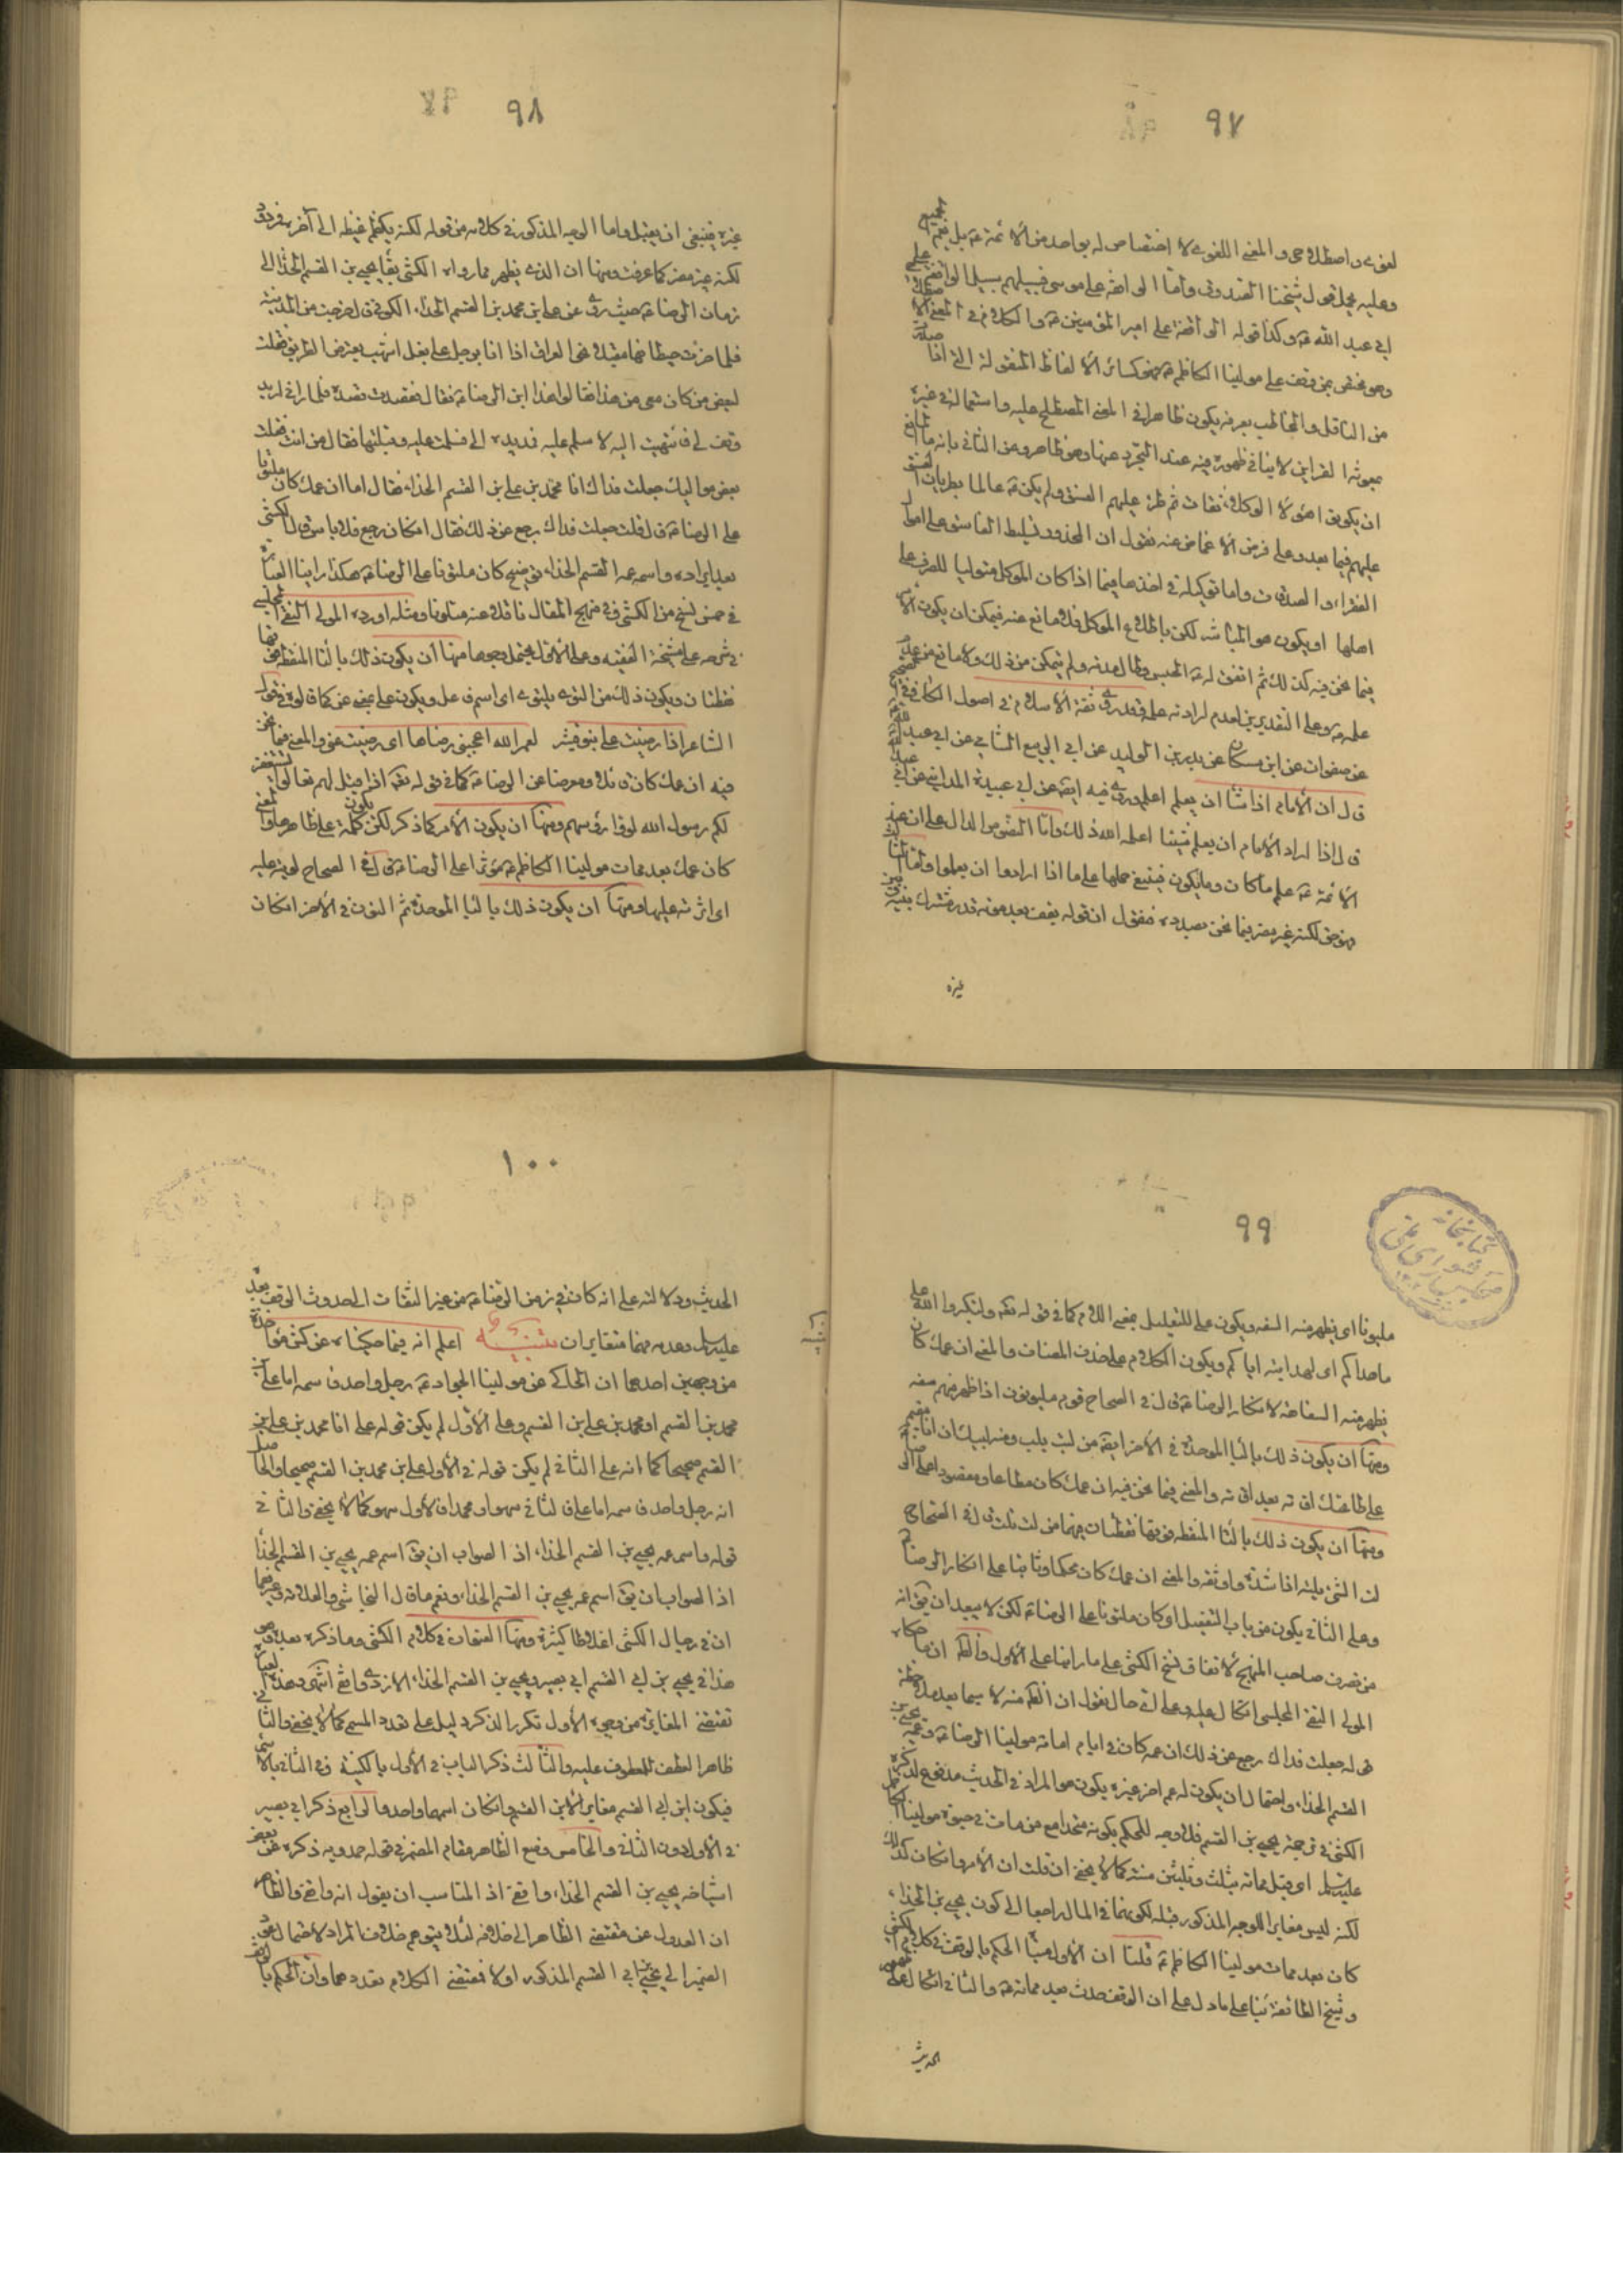 ٩٧
لغوى واصطلاحى والمعنى اللغوى لا اختصاص له بواحد من الأئمة ع بل يعم الجميع
وعليه يحمل قول شيخنا الصدوق واما الواقفة على موسى فسبيلهم سبيل الواقفة على
ابى عبد الله ع وكذا قوله الواقفة على امير المؤمنين ع والكلام فى المعنى الاصطلاحى
وهو مختص بمن وقف على مولينا الكاظم ع فهو كسائر الألفاظ المنقولة التى اذا صدر
من الناقل والمخاطب بعرفه يكون ظاهرا فى المعنى المصطلح عليه واستعماله فى غيره
بمعونة القراين لا ينافى ظهوره فيه عند التجرد عنها وهو ظاهر وعن الثانى بانه ما المانع
ان يكون هؤلاء الوكلاء ثقات ثم طرء عليهم الفسق ولم يكن ع عالما بطريان الفسق
عليهم فيما بعد وعلى فرض الاغماض عنه نقول ان المحذور تسليط الفاسق على اموال
الفقراء والصدقات واما توكيله فى اخذها فيما اذا كان الموكل متوليا للصرف على
اهلها او يكون هو المباشر لكن باطلاع الموكل فلا مانع عنه فيمكن ان يكون الأمر
فيما نحن فيه كذلك ثم اتفق له ع الحبس وطال مدته ولم يتمكن من ذلك ولا مانع من عدم
علمه ع وعلى التقديرين لعدم ارادته علمه فقد روى ثقة الأسلام فى اصول الكافى فى الصحيح
عن صفوان عن ابن مسكان عن بدر بن الوليد عن ابى الربيع الشامى عن ابى عبد الله ع
قال ان الأمام اذا شاء ان يعلم اعلم وروى فيه ايضا عن ابى عبيدة المداينى عن ابى عبد الله ع
قال اذا اراد الأمام ان يعلم شيئا اعلمه الله ذلك واما النصوص الدال على ان عند
الأئمة ع علم ما كان وما يكون فينبغى حملها على ما اذا ارادوا ان يعلموا واما الثالث
فهو حق لكنه غير مضر فيما نحن بصدده فنقول ان قوله يقف بعد موته قدر مشترك بينه وبين
غيره
٩٨
غيره فينبغى ان يقبل واما الوجه المذكور فى كلامه من قوله لكنه يكظم غيظه الى آخره فمردود
لكنه غير مضر كما عرفت ومنها ان الذى يظهر مما رواه الكشى بقاء يحيى بن القسم الحذاء الى
زمان الرضا ع حيث روى عن على بن محمد بن القسم الحذاء الكوفى قال خرجت من المدينة
فلما جزت حيطانها مقبلا نحو العراق اذا انا برجل على بغل اشهب يعترض الطريق فقلت
لبعض من كان معى من هذا فقالوا هذا ابن الرضا ع فقال فقصدت قصده فلما رانى اريده
وقف لى فانتهيت اليه لاسلم عليه فمد يده الى فسلمت عليه وقبلتها فقال من انت فقلت
بعض مواليك جعلت فداك انا محمد بن على بن القسم الحذاء فقال اما ان عمك كان ملتويا
على الرضا ع قال قلت جعلت فداك رجع عن ذلك فقال ان كان رجع فلا باس قال الكشى
بعد ايراده واسم عمه القسم الحذاء كان ملتويا على الرضا ع هكذا راينا العبارة
فى خمس نسخ من الكشى وفى منهج المقال ناقلا عنه متلونا ومثله اورده المولى التقى المجلسى
فى شرحه على مشيخة الفقيه وعلى الأول يحتمل وجوها منها ان يكون ذلك بالتاء المنقطه من فوقها
نقطتان ويكون ذلك من التوى يلتوى اى اسم فاعل ويكون على بمعنى عن كما قالوه فى قول
الشاعر اذا رضيت على بنو قشير لعمر الله اعجبنى رضاها اى رضيت عنى والمعنى فيما نحن
فيه ان عمك كان مائلا ومعرضا عن الرضا ع كما فى قوله تعالى اذا قيل لهم تعالوا يستغفر
لكم رسول الله لووا رؤسهم ومنها ان يكون الأمر كما ذكر لكن يكون كلمة على ظاهرها والمعنى
كان عمك بعد ممات مولينا الكاظم ع مؤثرا على الرضا ع قال فى الصحاح لويته عليه
اى اثرته عليه ومنها ان يكون ذلك بالباء الموحدة ثم النون فى الآخر ان كان
٩٩
ملبونا اى يظهر منه السفه ويكون على للتعليل بمعنى اللام كما فى قوله تعالى ولتكبروا الله على
ما هداكم اى لهدايته اياكم ويكون الكلام على حذف المضاف والمعنى ان عمك كان
يظهر منه السفاهة لانكار الرضا ع قال فى الصحاح قوم ملبونون اذا ظهر منهم سفه
ومنها ان يكون ذلك بالباء الموحدة فى الآخر ايضا من لب يلب ومنه لبيك اى انا مقيم
على طاعتك اقامة بعد اقامة والمعنى فيما نحن فيه ان عمك كان مطاعا ومقصودا على الوصلة
ومنها ان يكون ذلك بالتاء المنقطه من فوقها نقطتان فيهما من لت يلت قال فى الصحاح
لت الشئ يلته اذا شده واوثقه والمعنى ان عمك كان محكما وثابتا على انكار الرضا ع
وعلى الثانى يكون من باب التفعيل او كان متلونا على الرضا ع لكن لا يبعد ان يق انه
من تصرف صاحب المنهج لاتفاق نسخ الكشى على ما راينا على الأول والظاهر ان ما حكاه
المولى التقى المجلسى اتكال عليه وعلى اى حال نقول ان الظاهر منه لا سيما بعد ملاحظة
قوله جعلت فداك رجع عن ذلك ان عمه كان فى ايام امامة مولينا الرضا ع وعمه يحيى بن
القسم الحذاء واحتمال ان يكون له عم اخر غيره يكون هو المراد فى الحديث مدفوع لذكره
الكشى فى ترجمة يحيى بن القسم فلا وجه للحكم بكونه متحدا مع من مات فى حيوة مولينا الكاظم
عليه السلام اى قبل مماته بثلث وثلثين سنة كما لا يخفى ان قلت ان الأمر وان كان كذلك
لكنه ليس مغايرا للوجه المذكور قبله لكونهما فى المال راجعا الى كون يحيى بن الحذاء
كان بعد ممات مولينا الكاظم ع قلنا ان الأول مبنى الحكم بالوقف فى كلام الكشى
وشيخ الطائفة بناء على ما دل على ان الوقف حدث بعد مماته ع والثانى اتكال على
الحديث
١٠٠
الحديث ودلالته على انه كان فى زمن الرضا ع من غير التفات الى حدوث الوقف بعده
عليه السلام وعدمه فهما متغايران تنبيه اعلم انه فيما حكيناه عن كش مؤاخذة
من وجهين احدهما ان الحاكى عن مولينا الجواد ع رجل واحد فاسمه اما على بن
محمد بن القسم او محمد بن على بن القسم وعلى الأول لم يكن قوله على انا محمد بن على بن
القسم صحيحا كما انه على الثانى لم يكن قوله فى الأول على بن محمد بن القسم صحيحا والحاصل
انه رجل واحد فاسمه اما على فالثانى سهو او محمد فالأول سهو كما لا يخفى والثانى فى
قوله واسم عمه يحيى بن القسم الحذاء اذ الصواب ان يق اسم عمه يحيى بن القسم الحذاء
اذ الصواب ان يق اسم عمه يحيى بن القسم الحذاء ونعم ما قال النجاشى والعلامة وغيرهما
ان فى رجال الكشى اغلاطا كثيرة ومنها العنوان فى كلام الكشى وما ذكره بعده هو
هذا فى يحيى بن ابى القسم ابى بصير ويحيى بن القسم الحذاء الازدى واقفى انتهى وهذه العبارة
تقتضى المغايرة من وجوه الأول تكرر الذكر دليل على تعدد المسمى كما لا يخفى والثانى
ظاهر العطف للمعطوف عليه والثالث ذكر الباب فى الأول بالكنية وفى الثانى بالاسم
فيكون ابن ابى القسم مغايرا لابن القسم وان كان اسمهما واحدا والرابع ذكر ابى بصير
فى الأول دون الثانى والخامس وضع الظاهر مقام المضمر فى قوله حمدويه ذكره عن بعض
اشياخه يحيى بن القسم الحذاء واقفى اذ المناسب ان يقول انه واقفى والظاهر
ان العدول عن مقتضى الظاهر الى خلافه لئلا يتوهم خلاف المراد لاحتمال عود
الضمير الى يحيى بن ابى القسم المذكور اولا فمقتضى الكلام تعددهما وان الحكم بالوقف
كتابخانه
مجلس شوراى ملى